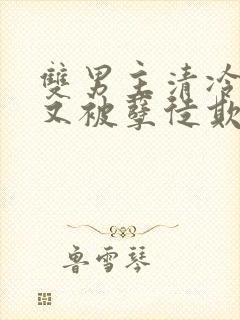 雙男主清冷
又被孽徒欺
魯雪琴